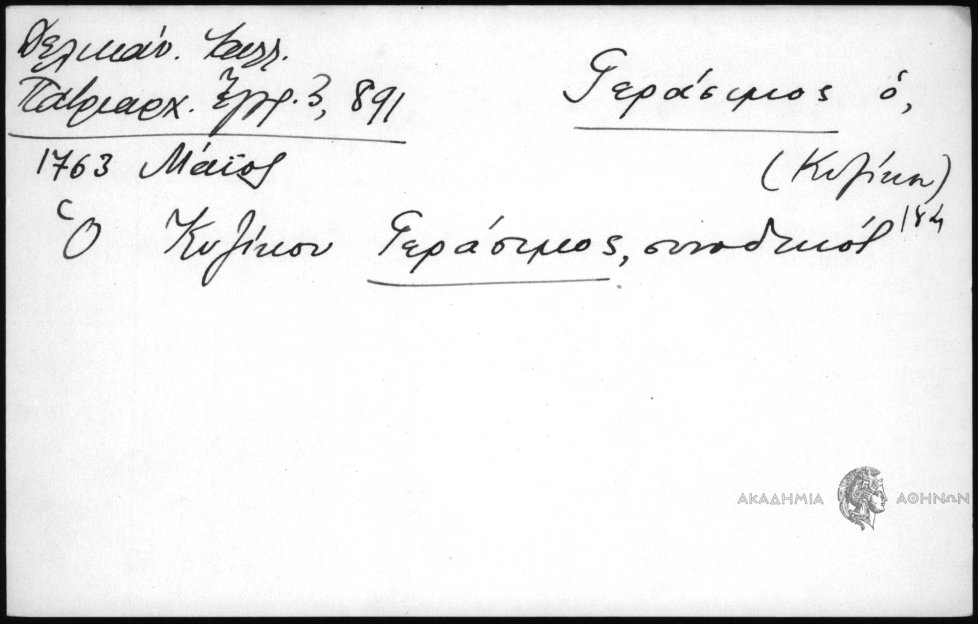 Δελικάν. Καλλ.
Πατριαρχ. Ἔγγρ. 3, 891
Γεράσιμος ὁ,
1763 Μάϊος
(Κυζίκου)
Ὁ Κυζίκου Γεράσιμος, συνοδικός
ΑΚΑΔΗΜΙΑ ΑΘΗΝΩΝ